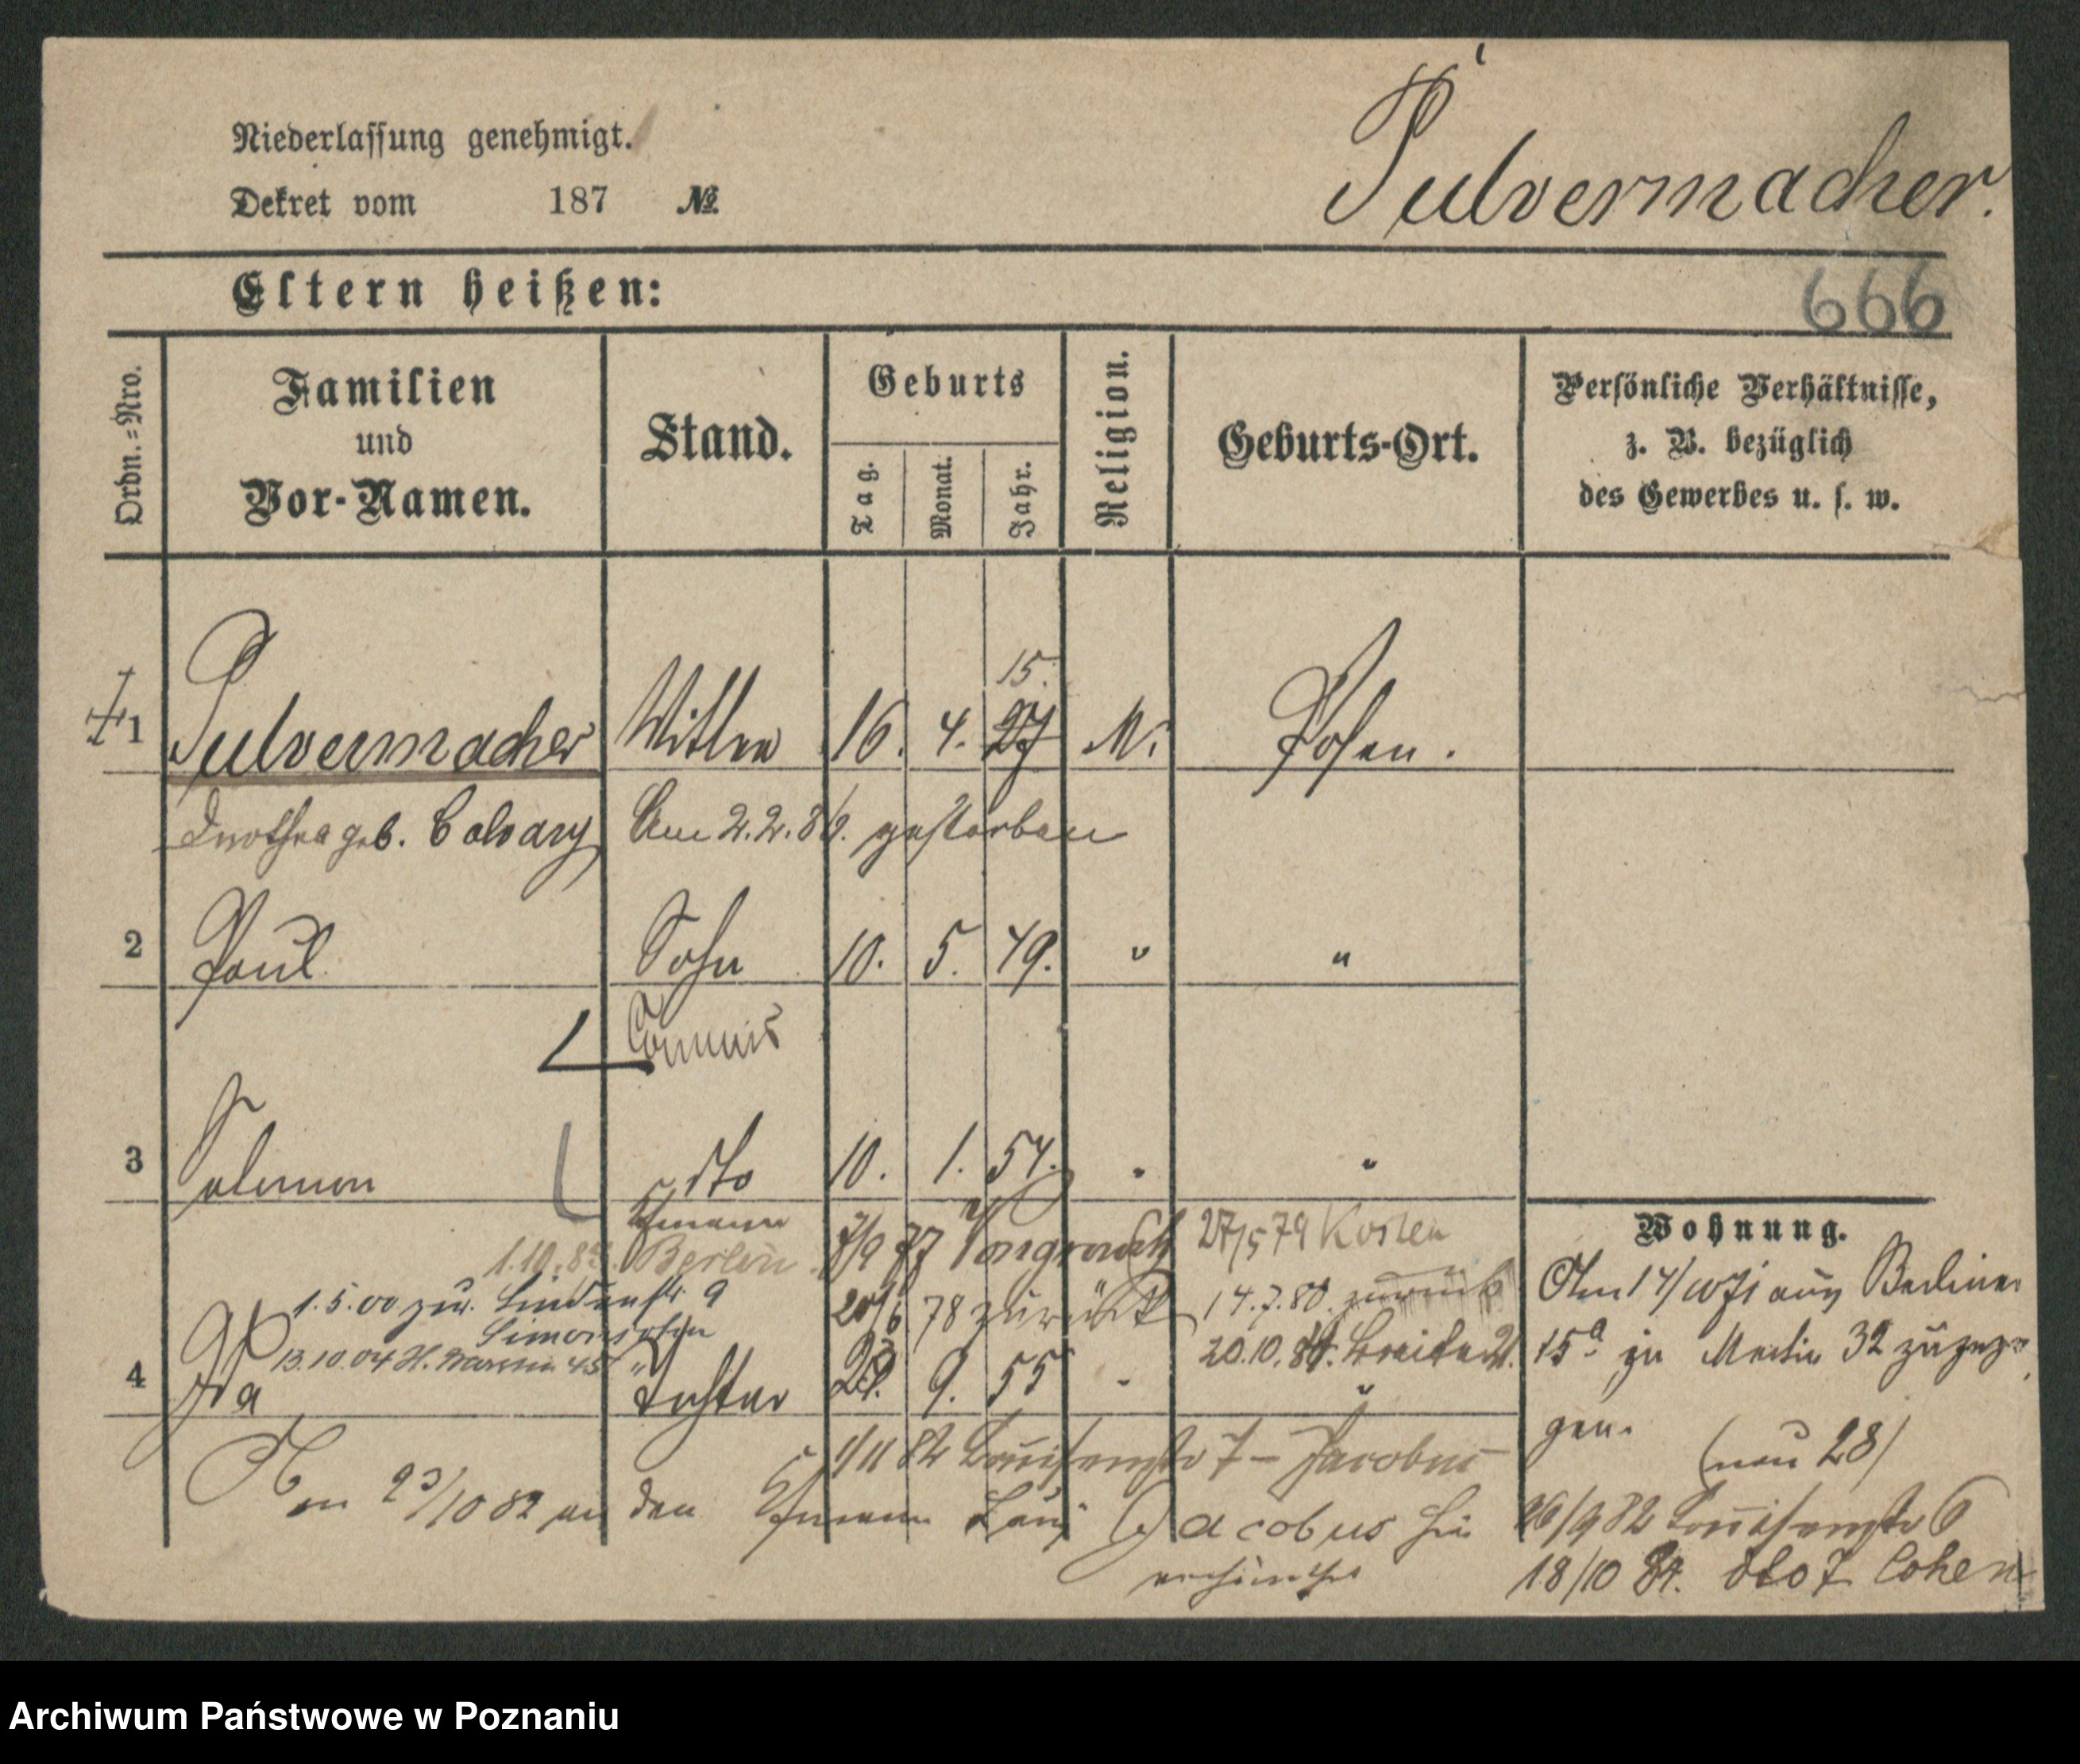 Pulvermacher.
Niederlassung genehmigt.
Dekret vom 187 №
Eltern heißen:
666
Ordn.=Nro.
Familien
und
Vor-Namen.
Stand.
Geburts
Tag.
Monat.
Jahr.
Religion.
Geburts-Ort.
Persönliche Verhältnisse,
z. B. bezüglich
des Gewerbes u. s. w.
15.
1 Pulvermacher Wittwe 16. 4. 27 M. Posen.
Dorothea geb. Calvary Am 2.2.86. gestorben
2 Paul Sohn 10. 5. 49. " "
Commis
3 Salomon dto 10. 1. 54. " "
Ehmann 7/9 77 Wongrowitz 27/5 79 Kosten
1.10.83. Berlin
1.5.00 zu. Lindenstr. 9 20/6 78 zurück 14.7.80. zurück
Simonsohn
13.10.04 H. 45 20.10.84. Breite 21.
4 Ida Tochter 29. 9. 55 " "
1/11 82 Louisenstr 7 - Jacobus
Am 23/10 82 an den Ehmann Louis Jacobus hier
Wohnung.
Am 14/10 71 aus Berliner
15a zu Martin 32 zugezo
gen. (neu 28)
26/9 82 Louisenstr 6
18/10 84. dto 7 Cohen
Archiwum Państwowe w Poznaniu